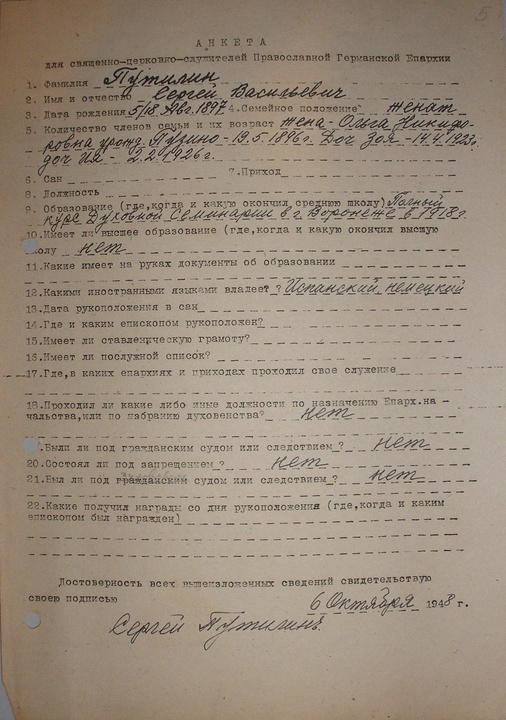 5
АНКЕТА
для священно-церковно-служителей Православной Германской Епархии
1. Фамилия Путилин
2. Имя и отчество Сергей Васильевич
3. Дата рождения 5/18 Авг. 1897 4.Семейное положение женат
5. Количество членов семьи и их возраст жена - Ольга Никифо-
ровна урожд. 19.5.1896г. Доч Зоя - 14.4.1923г.
доч Ия - 2.2.1926г.
6. Сан 7.Приход
8. Должность
9. Образование (где,когда и какую окончил среднюю школу) Полный
курс Духовной Семинарии в г. Воронеже в 1918г.
10.Имеет ли высшее образование (где,когда и какую окончил высшую
колу нет
11.Какие имеет на руках документы об образовании
12.Какими иностранными языками владеет? Испанский, немецкий
13.Дата рукоположения в сан
14.Где и каким епископом рукоположен?
15.Имеет ли ставленическую грамоту?
16.Имеет ли послужной список?
17.Где,в каких епархиях и приходах проходил свое служение
18.Проходил ли какие либо иные должности по назначению Епарх.на-
чальства,или по избранию духовенства? нет
.Были ли под гражданским судом или следствием? нет
20.Состоял ли под запрещением? нет
21.Был ли под гражданским судом или следствием? нет
22.Какие получил награды со дня рукоположения (где,когда и каким
епископом был награжден)
Достоверность всех вышеизложенных сведений свидетельствую
своею подписью
6 Октября 1948 г.
Сергей Путилинъ